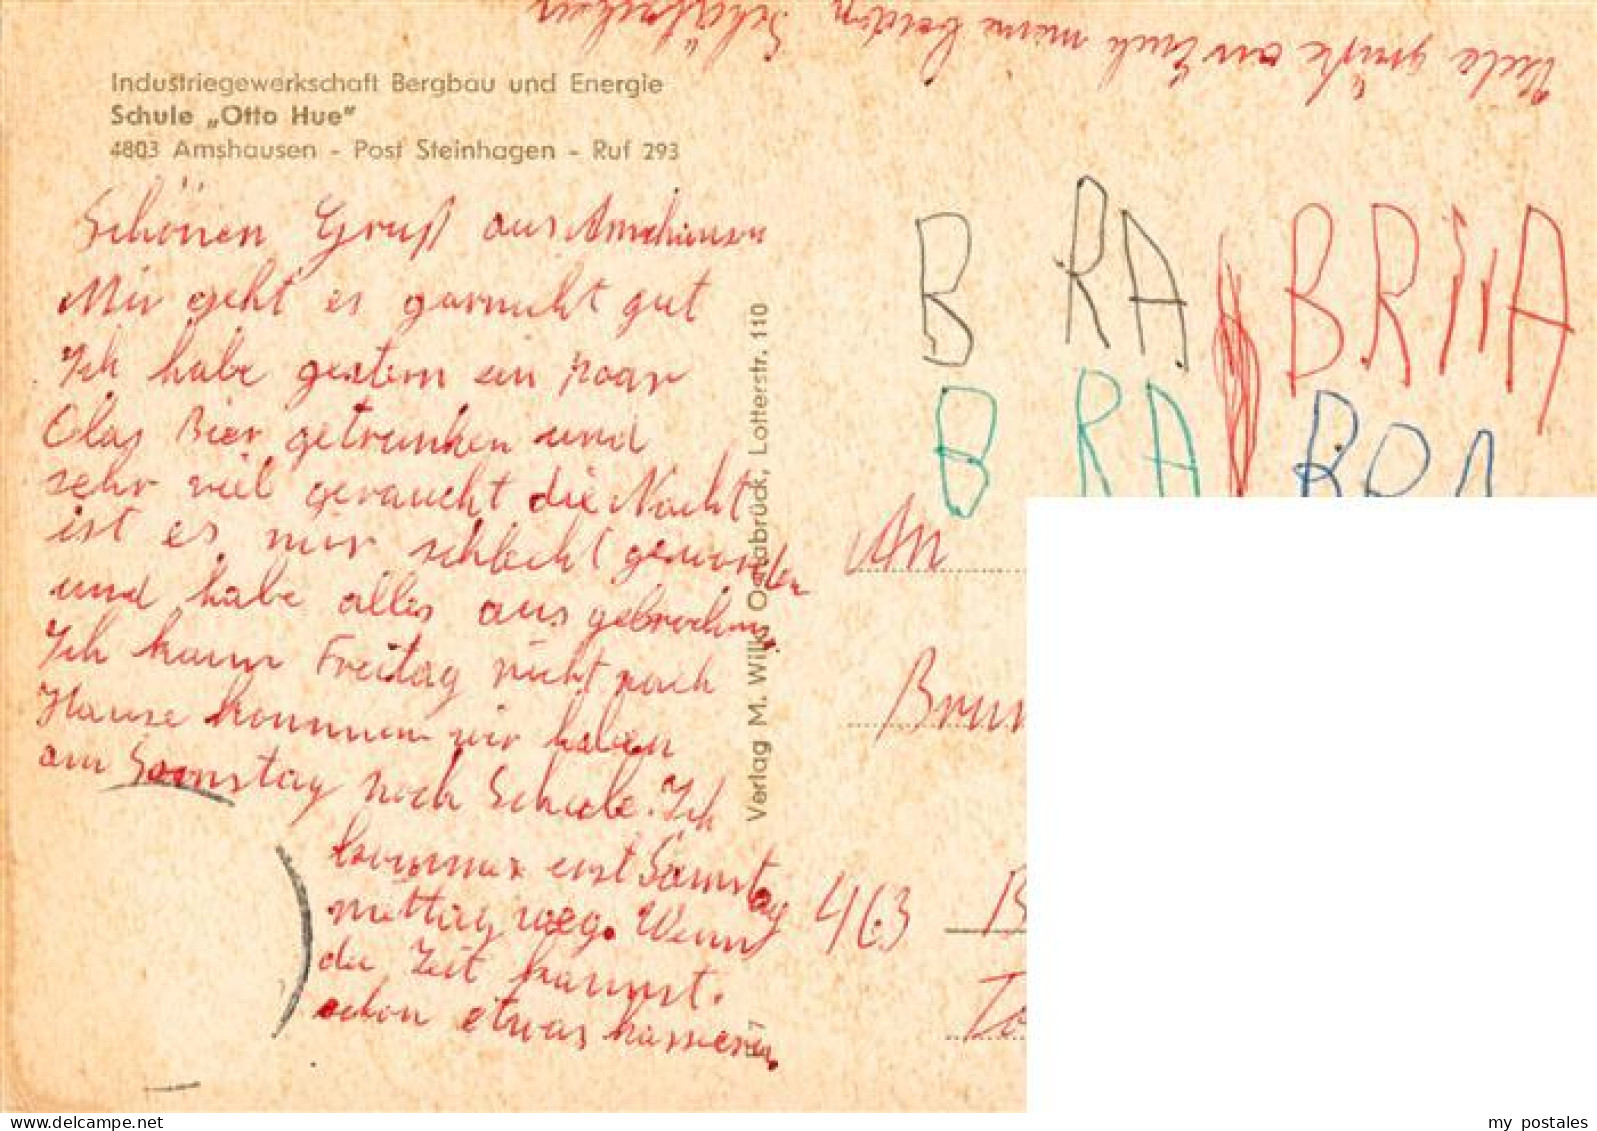 Viele grüße an Euch meine beiden Schätzchen
Industriegewerkschaft Bergbau und Energie
Schule „Otto Hue"
4803 Amshausen - Post Steinhagen - Ruf 293
Schönen Gruß aus Amshausen
Mir geht es garnicht gut
Ich habe gestern ein paar
Glas Bier getrunken und
sehr viel geraucht die Nacht
ist es mir schlecht geworden
und habe alles aus gebrochen
Ich kann Freitag nicht nach
Hause kommen wir haben
am Samstag noch Schule. Ich
komme erst Samstag
mittag weg. Wenn
du Zeit kannst.
schon etwas kassieren.
Verlag M. Wilke Osnabrück, Lotterstr. 110
F 7
B RA BRiiA
B RA BRA
An
Brun
463 B
To
delcampe.net
my_postales